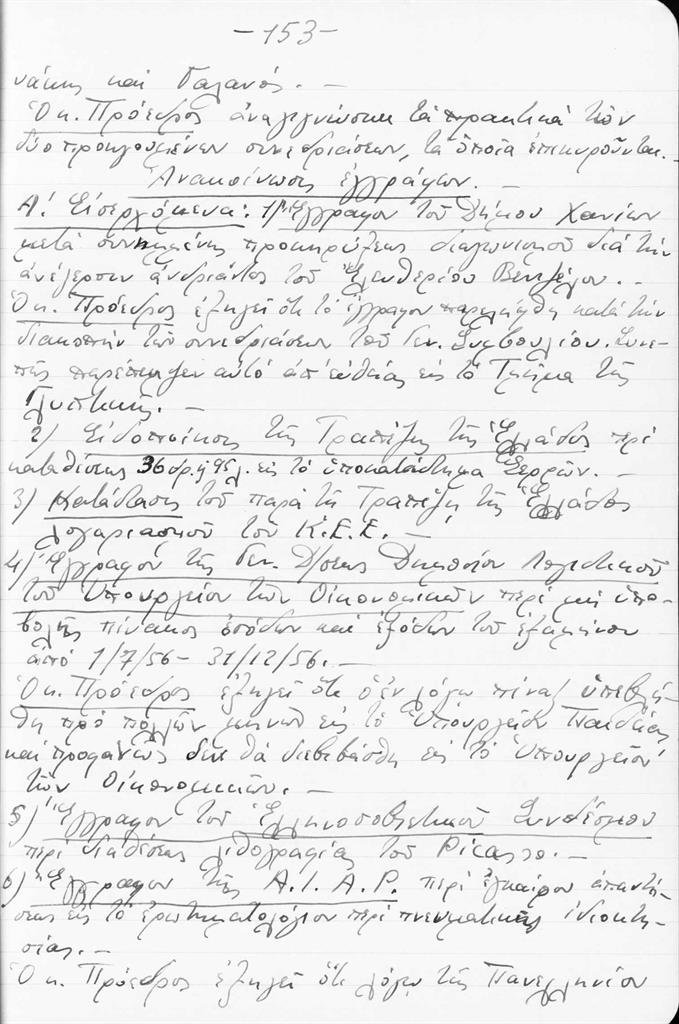 -153-
νάκης καὶ Γαλανός. -
Ὁ κ. Πρόεδρος ἀναγιγνώσκει τὰ πρακτικὰ τῶν
δύο προηγουμένων συνεδριάσεων, τὰ ὁποῖα ἐπικυροῦνται. -
Ἀνακοίνωσις ἐγγράφων. -
Α! Εἰσερχόμενα: 1) Ἔγγραφον τοῦ Δήμου Χανίων
μετὰ συνημμένης προκηρύξεως διαγωνισμοῦ διὰ τὴν
ἀνέγερσιν ἀνδριάντος τοῦ Ἐλευθερίου Βενιζέλου. -
Ὁ κ. Πρόεδρος ἐξηγεῖ ὅτι τὸ ἔγγραφον παρελήφθη κατὰ τὴν
διακοπὴν τῶν συνεδριάσεων τοῦ Γεν. Συμβουλίου. Συνε-
πῶς παρέπεμψεν αὐτὸ ἀπ' εὐθείας εἰς τὸ Τμῆμα τῆς
Γλυπτικῆς. -
2) Εἰδοποίησις τῆς Τραπέζης τῆς Ἑλλάδος περὶ
καταθέσεως 36 δρ. ἢ 95 λ. εἰς τὸ ὑποκατάστημα Σερρῶν. -
3) Κατάστασις τοῦ παρὰ τῇ Τραπέζῃ τῆς Ἑλλάδος
λογαριασμοῦ τοῦ Κ.Ε.Ε. -
4) Ἔγγραφον τῆς Γεν. Δ/σεως Δημοσίου Λογιστικοῦ
τοῦ Ὑπουργείου τῶν Οἰκονομικῶν περὶ μὴ ὑπο-
βολῆς πίνακος ἐσόδων καὶ ἐξόδων τοῦ ἑξαμήνου
ἀπὸ 1/7/56 - 31/12/56. -
Ὁ κ. Πρόεδρος ἐξηγεῖ ὅτι ὁ ἐν λόγῳ πίναξ ὑπεβλή-
θη πρὸ πολλῶν μηνῶν εἰς τὸ Ὑπουργεῖον Παιδείας
καὶ προφανῶς δὲν θὰ διεβιβάσθη εἰς τὸ Ὑπουργεῖον
τῶν Οἰκονομικῶν. -
5) Ἔγγραφον τοῦ Ἑλληνοσοβιετικοῦ Συνδέσμου
περὶ διαθέσεως λιθογραφίας τοῦ Picasso. -
6) Ἔγγραφον τῆς A.I.A.P. περὶ ἐγκαίρου ἀπαντή-
σεως εἰς τὸ ἐρωτηματολόγιον περὶ πνευματικῆς ἰδιοκτη-
σίας. -
Ὁ κ. Πρόεδρος ἐξηγεῖ ὅτι λόγῳ τῆς Πανελληνίου